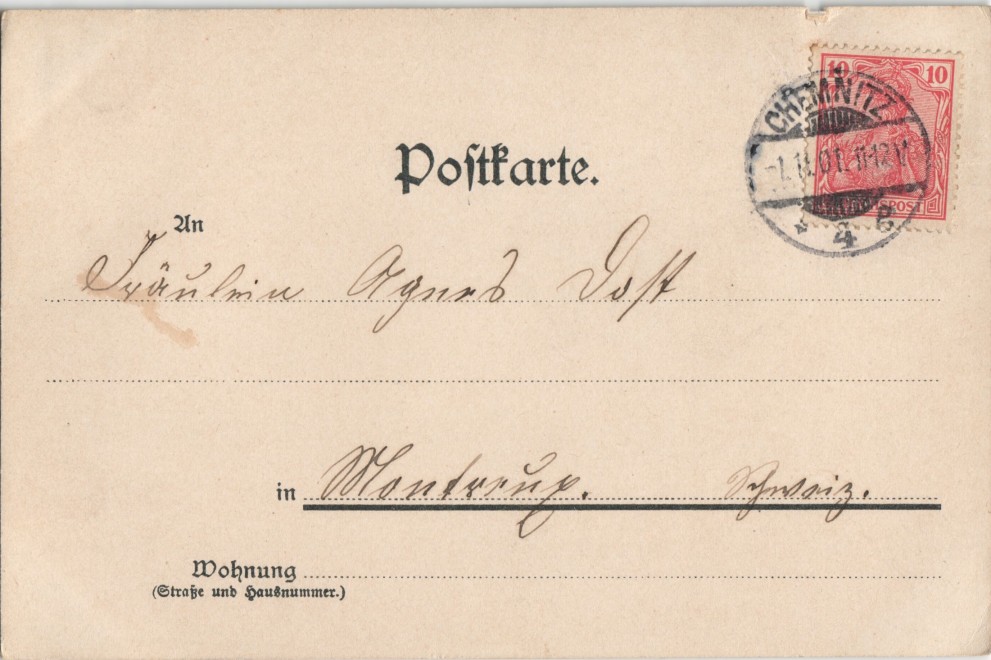 10 10
CHEMNITZ
1.11.01. 11-12 V
* 4 g.
REICHSPOST
Postkarte.
An
Fräulein Agnes Dost
in Montreux. Schweiz.
Wohnung
(Straße und Hausnummer.)